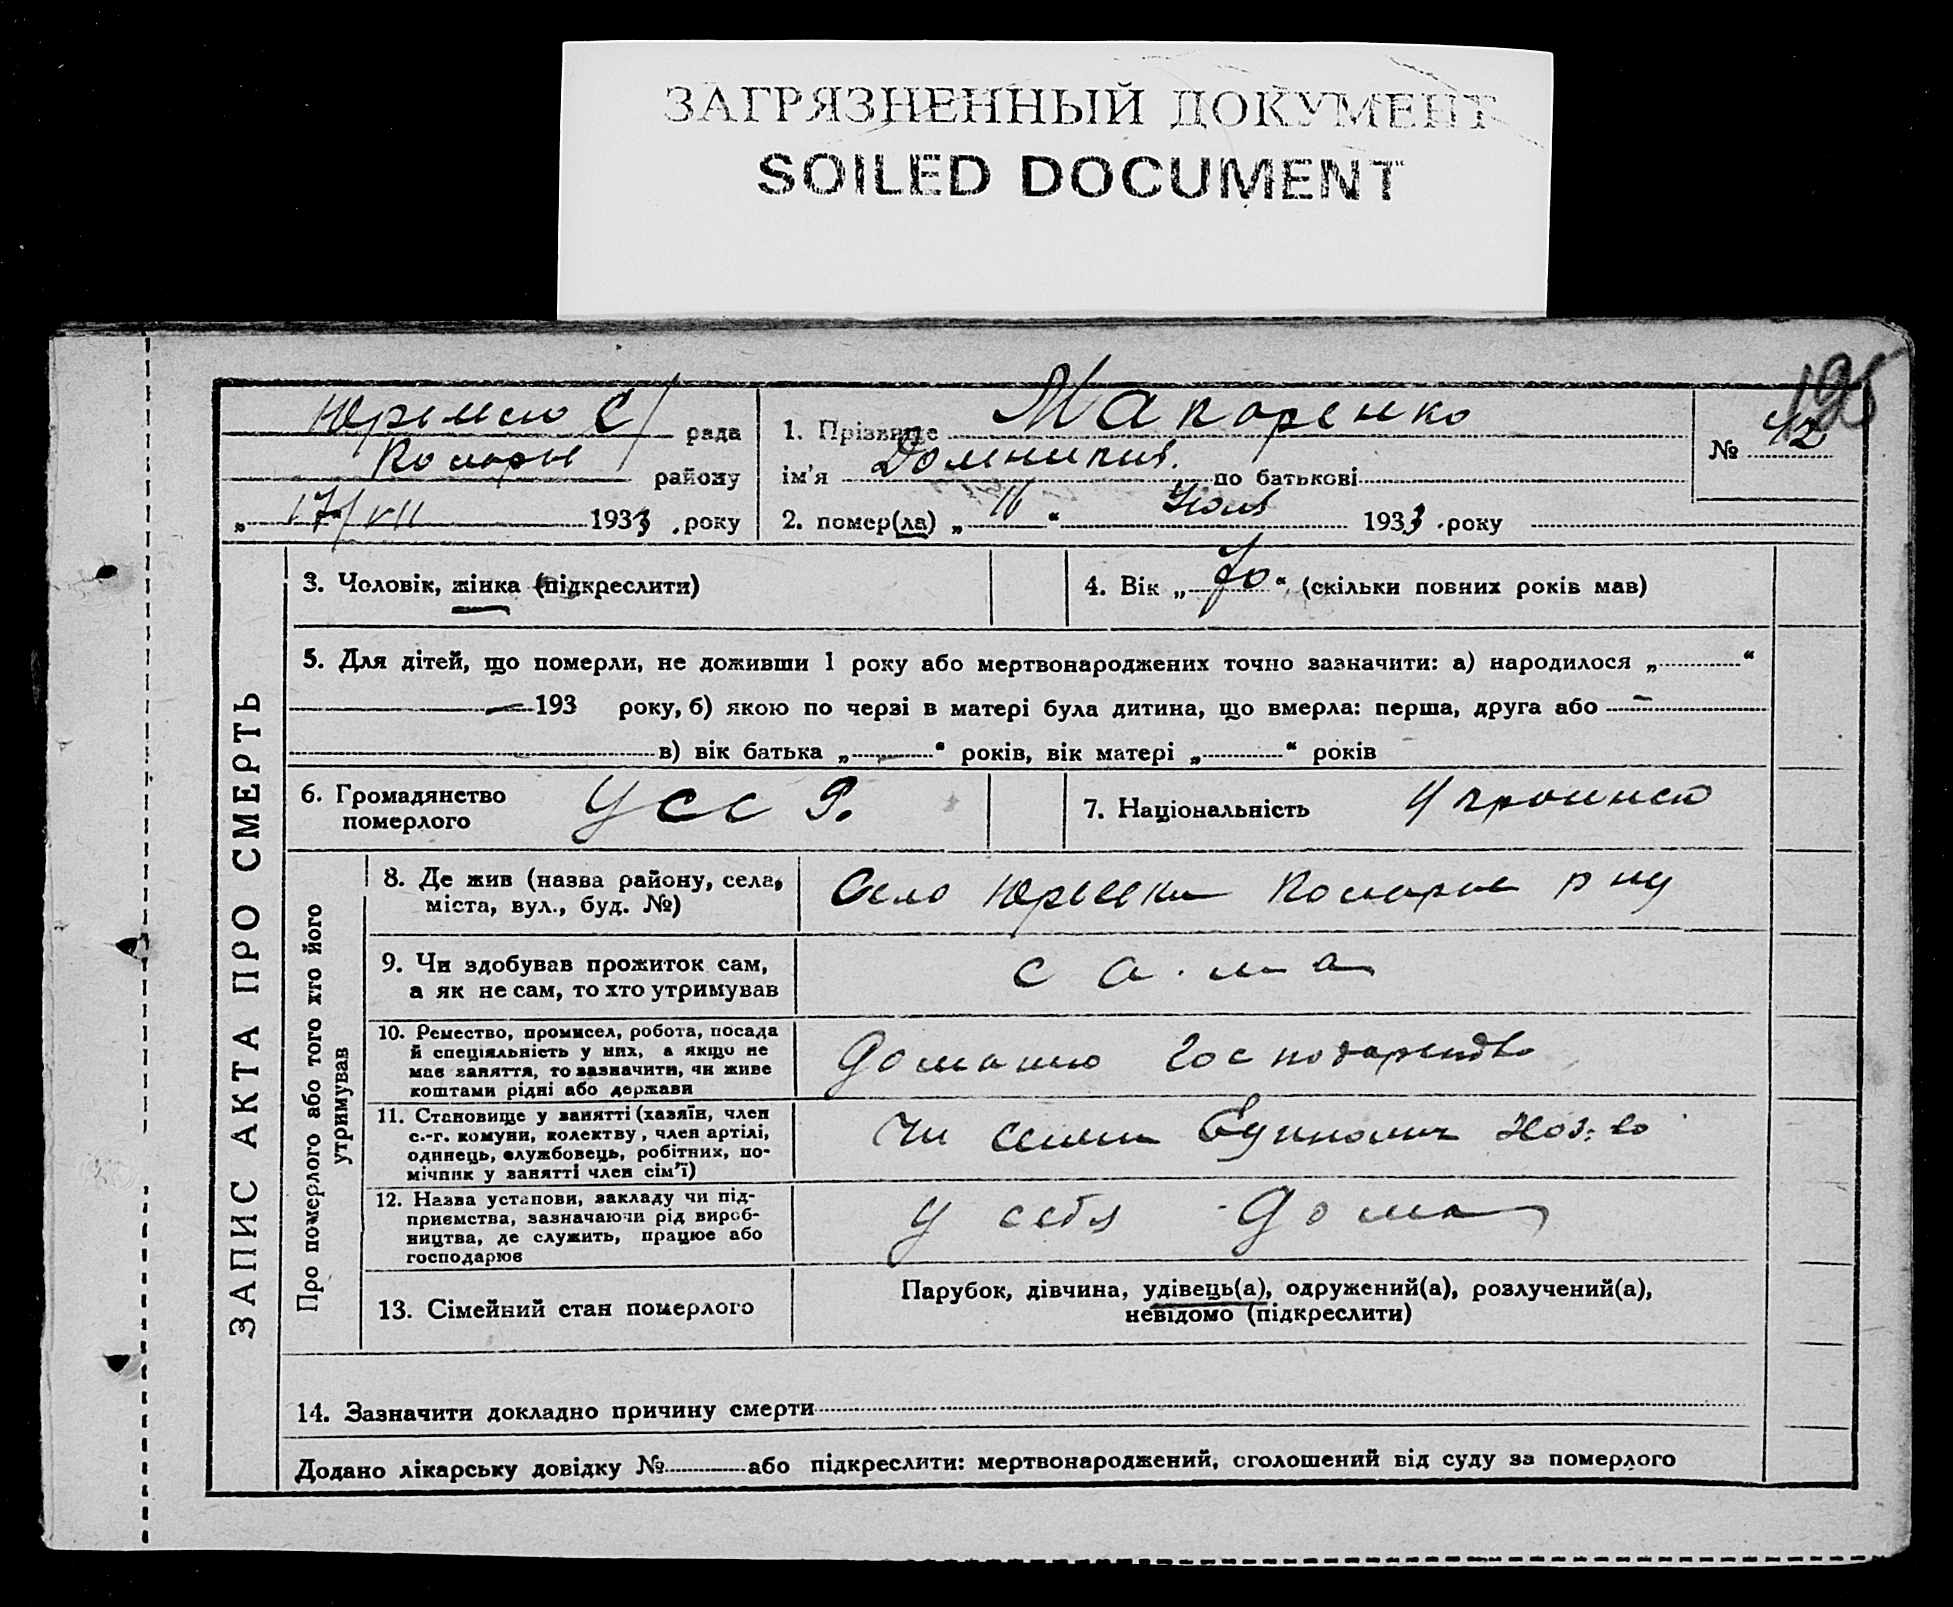 ЗАГРЯЗНЕННЫЙ ДОКУМЕНТ
SOILED DOCUMENT
195
рада
району
„ 17/VII 1933 року
1. Прізвище Макаренко
ім'я по батькові
2. помер(ла) „ “ 1933 року
№ 42
ЗАПИС АКТА ПРО СМЕРТЬ
3. Чоловік, жінка (підкреслити)
4. Вік „ 70 “ (скільки повних років мав)
5. Для дітей, що померли, не доживши 1 року або мертвонароджених точно зазначити: а) народилося „ “
193 року, б) якою по черзі в матері була дитина, що вмерла: перша, друга або —
в) вік батька „ “ років, вік матері „ “ років
6. Громадянство
померлого
УССР.
7. Національність
Про померлого або того хто його
утримував
8. Де жив (назва району, села,
міста, вул., буд. №)
Село
9. Чи здобував прожиток сам,
а як не сам, то хто утримував
сама
10. Ремество, промисел, робота, посада
й спеціяльність у них, а якщо не
має заняття, то зазначити, чи живе
коштами рідні або держави
11. Становище у занятті (хазяїн, член
с.-г. комуни, колектву, член артілі,
одинець, службовець, робітник, по-
мічник у занятті член сім'ї)
12. Назва установи, закладу чи під-
приємства, зазначаючи рід вироб-
ництва, де служить, працює або
господарює
у себя дома
13. Сімейний стан померлого
Парубок, дівчина, удівець(а), одружений(а), розлучений(а),
невідомо (підкреслити)
14. Зазначити докладно причину смерти
Додано лікарську довідку № або підкреслити: мертвонароджений, оголошений від суду за померлого